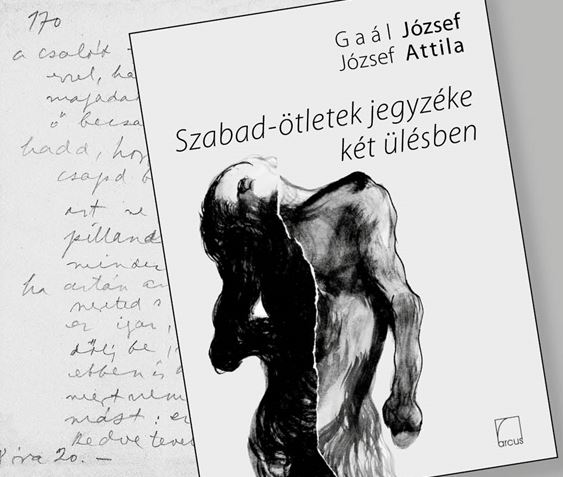 170
a csalók
evvel, ha
majada
ő becsa
hadd, hogy
csapd b
azt ne
pilland
minden
ha aztán az
neked
ez igaz,
dőlj be,
ebben is
mert nem
mást: ez
kedve teve
óra 20. –
Gaál József
József Attila
Szabad-ötletek jegyzéke
két ülésben
arcus